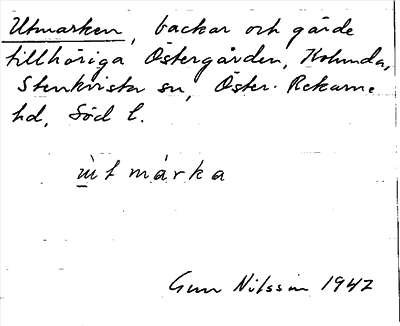 Utmarken, backar och gärde
tillhöriga Östergården, Kolunda,
Stenkvista sn, Öster-Rekarne
hd, Söd l.
ùtmárka
Gun Nilsson 1947